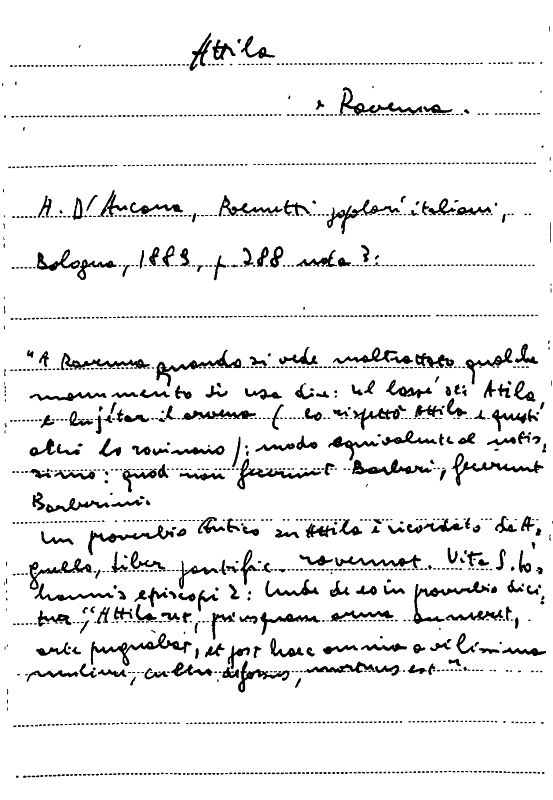 Attila
a Ravenna.
A. D'Ancona, Poemetti popolari italiani,
Bologna, 1889, p. 288 nota 3:
"A Ravenna quando si vede maltrattato qualche
monumento si usa dire: ul lassé sté Atila,
e l'arvena (lo rispettò Attila e questi
altri lo rovinano); modo equivalente al notis-
simo: quod non fecerunt Barbari, fecerunt
Barberini.
Un proverbio antico su Attila è ricordato da A-
gnello, Liber pontific. ravennat. Vita S. Io-
hannis episcopi 2: Unde de eo in proverbio dici-
tur: "Attila rex, priusquam arma sumeret,
arte pugnabat, et post haec omnia a vilissima
muliere, cultro defossus, mortuus est".